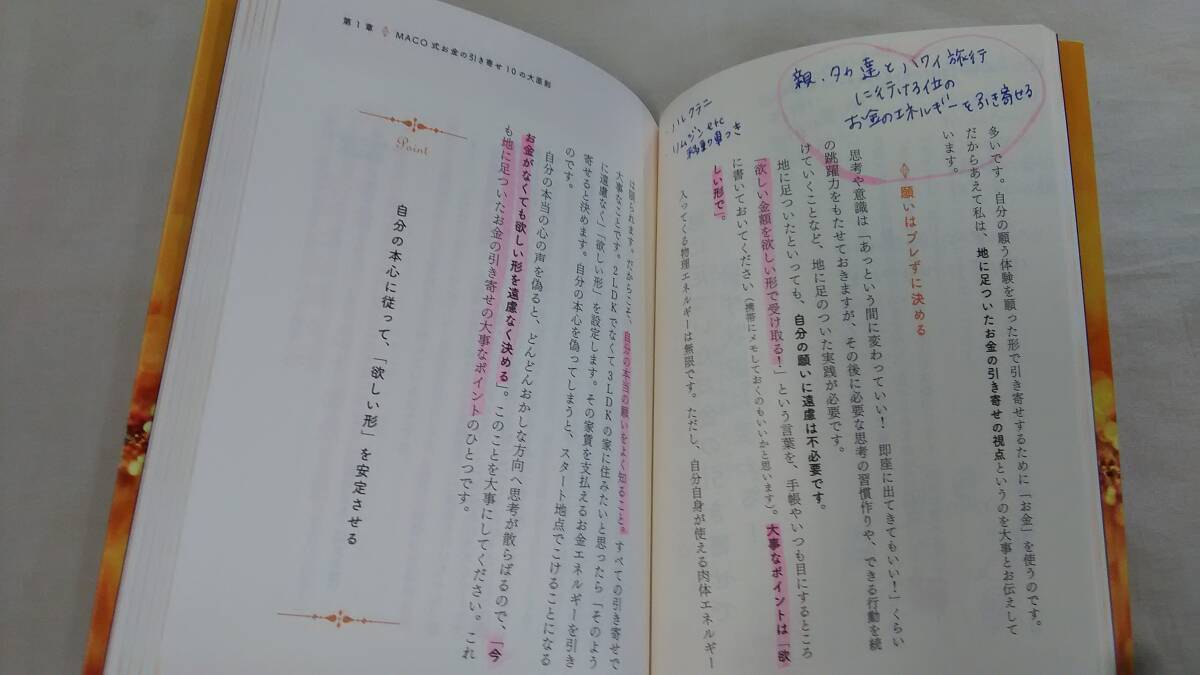 親、タカ達とハワイ旅行
に行ける位の
お金のエネルギーを引き寄せる
多いです。自分の願う体験を願った形で引き寄せするために「お金」を使うのです。
だからあえて私は、地に足ついたお金の引き寄せの視点というのを大事とお伝えして
います。
願いはブレずに決める
思考や意識は「あっという間に変わっていい! 即座に出てきてもいい!」くらい
の跳躍力をもたせておきますが、その後に必要な思考の習慣作りや、できる行動を続
けていくことなど、地に足のついた実践が必要です。
地に足ついたといっても、自分の願いに遠慮は不必要です。
「欲しい金額を欲しい形で受け取る!」という言葉を、手帳やいつも目にするところ
に書いておいてください(携帯にメモしておくのもいいかと思います)。大事なポイントは「欲
しい形で」。
ハレクラニ
リムジンetc
つき
入ってくる物理エネルギーは無限です。ただし、自分自身が使える肉体エネルギー
第1章 MACO式お金の引き寄せ10の大原則
は限られます。だからこそ、自分の本当の願いをよく知ること。すべての引き寄せで
大事なことです。2LDKでなくて3LDKの家に住みたいと思ったら「そのよう
に遠慮なく」「欲しい形」を設定します。その家賃を支払えるお金エネルギーを引き
寄せると決めます。自分の本心を偽ってしまうと、スタート地点でこけることになる
のです。
自分の本当の心の声を偽ると、どんどんおかしな方向へ思考が散らばるので、「今
お金がなくても欲しい形を遠慮なく決める」。このことを大事にしてください。これ
も地に足ついたお金の引き寄せの大事なポイントのひとつです。
Point
自分の本心に従って、「欲しい形」を安定させる